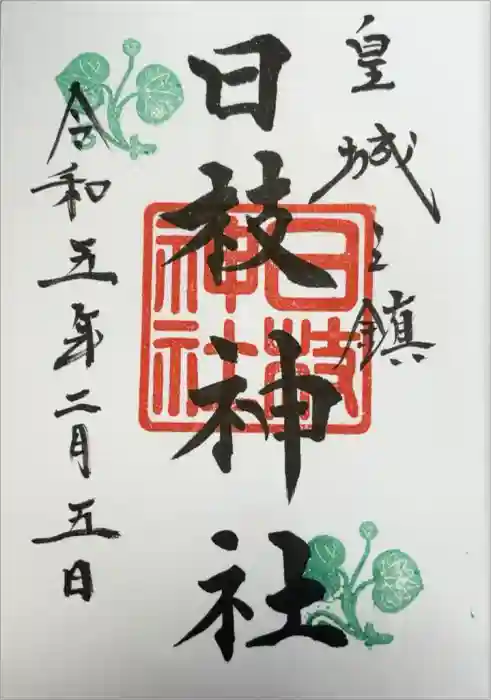 皇城之鎮
日枝神社
日枝神社
令和五年二月五日